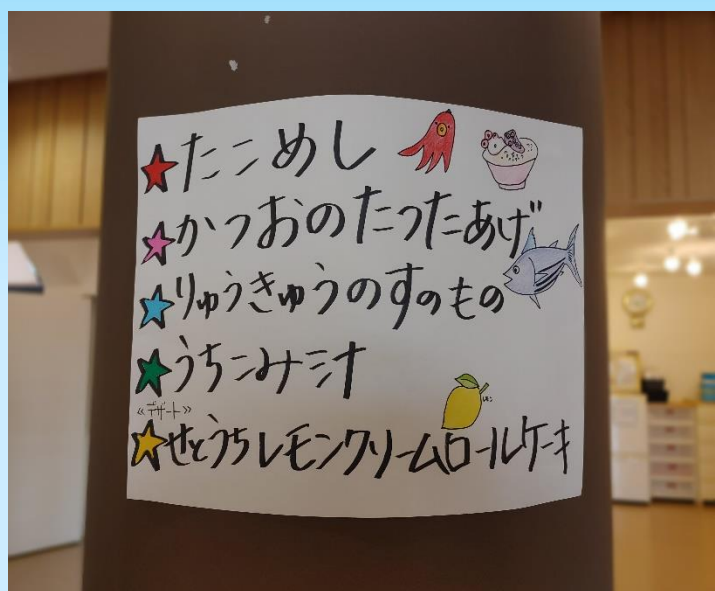 たこめし
かつおのたつたあげ
りゅうきゅうのすのもの
うちこみ汁
≪デザート≫
せとうちレモンクリームロールケーキ